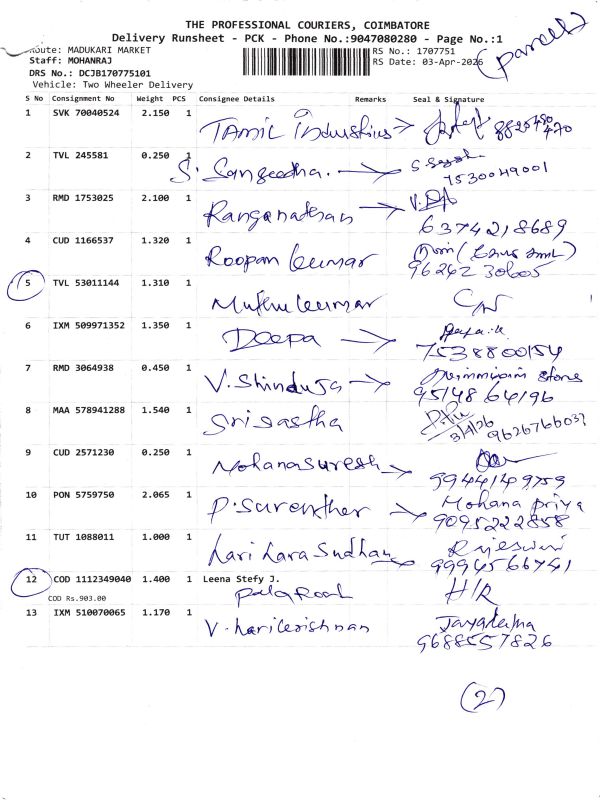 THE PROFESSIONAL COURIERS, COIMBATORE
Delivery Runsheet - PCK - Phone No.:9047080280 - Page No.:1
(Parcel)
Route: MADUKARI MARKET
RS No.: 1707751
Staff: MOHANRAJ
RS Date: 03-Apr-2026
DRS No.: DCJB170775101
Vehicle: Two Wheeler Delivery
S No Consignment No Weight PCS Consignee Details Remarks Seal & Signature
1 SVK 70040524 2.150 1
TAMIL Industries
2 TVL 245581 0.250 1
S. Sangeetha.
7530049001
3 RMD 1753025 2.100 1
Ranganathan
6374218689
4 CUD 1166537 1.320 1
Roopan kumar
96262 30605
5 TVL 53011144 1.310 1
Muthukumar C/N
6 IXM 509971352 1.350 1
Deepa
7538800154
7 RMD 3064938 0.450 1
V. Shinduja
95148 64196
8 MAA 578941288 1.540 1
Sri sastha
3/4/26 9626766032
9 CUD 2571230 0.250 1
Mohanasuresh
9944149759
10 PON 5759750 2.065 1
P. Surenther Mohana priya
9095222858
11 TUT 1088011 1.000 1
Hari Hara Sudhan Rajeswari
9994566741
12 COD 1112349040 1.400 1 Leena Stefy J.
COD Rs.903.00
H/R
13 IXM 510070065 1.170 1
V. harikrishnan
9688557826
(2)